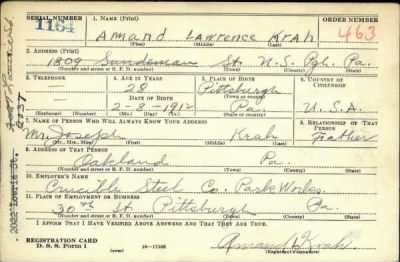 SERIAL NUMBER
1. NAME (Print)
ORDER NUMBER
1164
Amand Lawrence Krah
463
(First) (Middle) (Last)
2. ADDRESS (Print)
1809 Sundeman St. N.S. Pgh. Pa.
(Number and street or R. F. D. number) (Town) (County) (State)
3. TELEPHONE
4. AGE IN YEARS
5. PLACE OF BIRTH
6. COUNTRY OF CITIZENSHIP
28
Pittsburgh
DATE OF BIRTH
(Town or county)
2-8-1912
Pa.
U.S.A.
(Exchange) (Number)
(Mo.) (Day) (Yr.)
(State or country)
7. NAME OF PERSON WHO WILL ALWAYS KNOW YOUR ADDRESS
8. RELATIONSHIP OF THAT PERSON
Mr. Joseph Krah Father
(Mr., Mrs., Miss) (First) (Middle) (Last)
9. ADDRESS OF THAT PERSON
Oakland Pa.
(Number and street or R. F. D. number) (Town) (County) (State)
10. EMPLOYER'S NAME
Crucible Steel Co. Park Works
11. PLACE OF EMPLOYMENT OR BUSINESS
30th St. Pittsburgh Pa.
(Number and street or R. F. D. number) (Town) (County) (State)
I AFFIRM THAT I HAVE VERIFIED ABOVE ANSWERS AND THAT THEY ARE TRUE.
REGISTRATION CARD
D. S. S. Form 1
16-17105
Amand L Krah
(Registrant's signature)